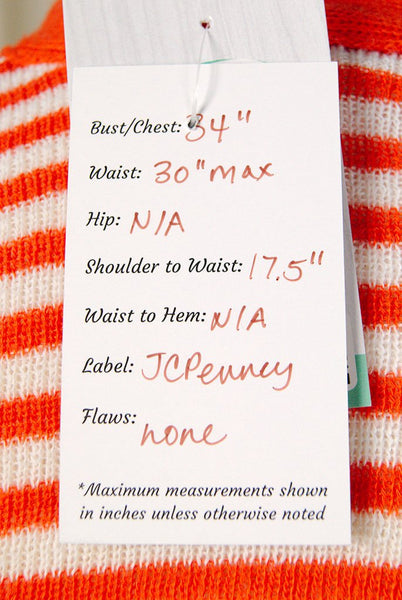 Bust/Chest: 34"
Waist: 30" max
Hip: N/A
Shoulder to Waist: 17.5"
Waist to Hem: N/A
Label: JCPenney
Flaws: none
*Maximum measurements shown
in inches unless otherwise noted